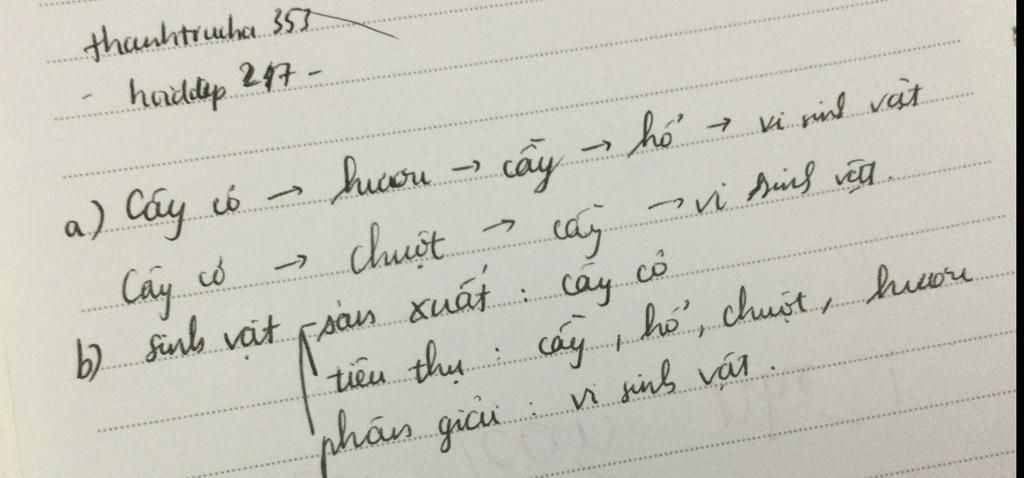 thanhtrucha 353
- hoiddap 247 -
a) Cây cỏ → hươu → cầy → hổ → vi sinh vật
Cây cỏ → chuột → cầy → vi sinh vật.
b) sinh vật sản xuất : cây cỏ
tiêu thụ : cầy, hổ, chuột, hươu
phân giải : vi sinh vật.